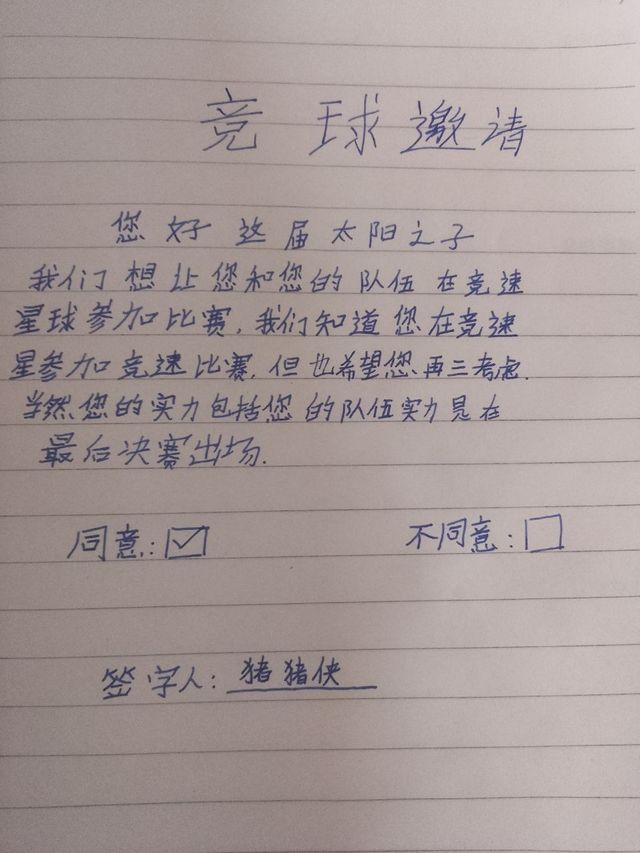 竞球邀请
您好这届太阳之子
我们想让您和您的队伍在竞速
星球参加比赛,我们知道您在竞速
星参加竞速比赛,但也希望您再三考虑.
当然您的实力包括您的队伍实力是在
最后决赛出场.
同意:☑ 不同意:□
签字人:猪猪侠